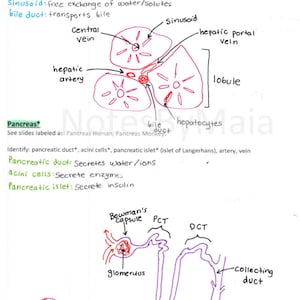 Sinusoid: free exchange of water/solutes
bile duct: transports bile
sinusoid
central vein
hepatic portal vein
hepatic artery
lobule
bile duct
hepatocytes
NotesByMaia
Pancreas*
See slides labeled as: Pancreas Human; Pancreas Monkey
Identify: pancreatic duct*, acini cells*, pancreatic islet* (islet of Langerhans), artery, vein
Pancreatic duct: Secretes water/ions
acini cells: Secrete enzymes
Pancreatic islet: Secrete insulin
Bowman's capsule
PCT
DCT
glomerulus
collecting duct